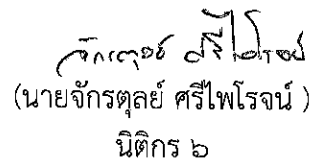 จักรตุลย์ ศรีไพโรจน์
(นายจักรตุลย์ ศรีไพโรจน์ )
นิติกร ๖